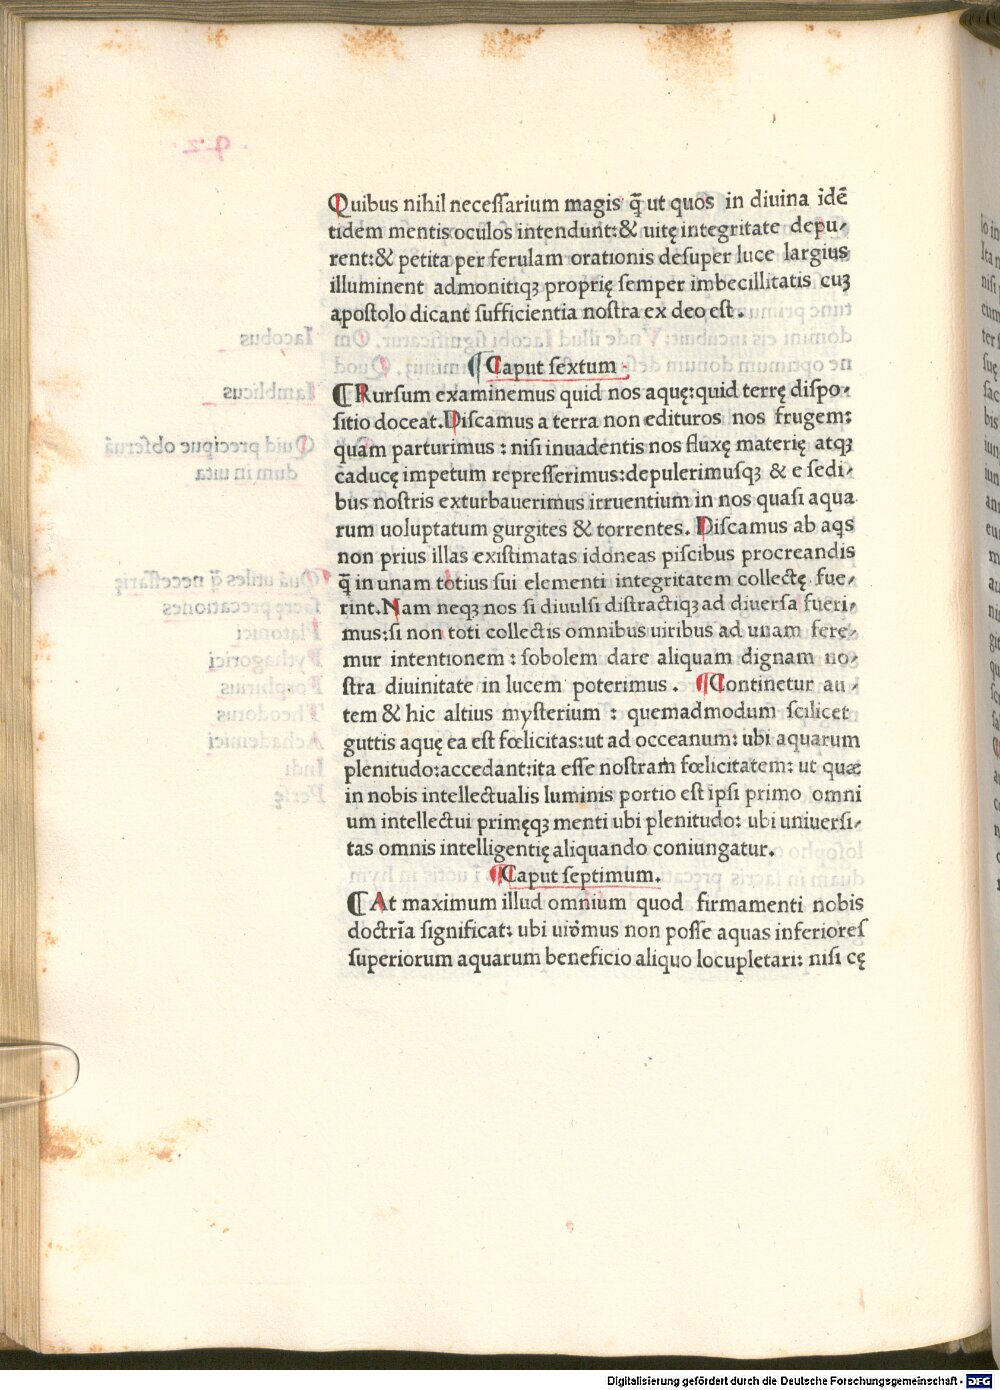 Quibus nihil necessarium magis q̃ ut quos in diuina idẽ
tidem mentis oculos intendunt:& uitę integritate depu-
rent:& petita per ferulam orationis desuper luce largius
illuminent admonitiqꝫ proprię semper imbecillitatis cuꝫ
apostolo dicant sufficientia nostra ex deo est.
¶ Caput sextum
¶ Rursum examinemus quid nos aquę:quid terrę dispo-
sitio doceat.Discamus a terra non edituros nos frugem:
quam parturimus : nisi inuadentis nos fluxę materię atqꝫ
caducę impetum represserimus:depulerimusqꝫ & e sedi-
bus nostris exturbauerimus irruentium in nos quasi aqua
rum uoluptatum gurgites & torrentes. Discamus ab aqs
non prius illas existimatas idoneas piscibus procreandis
q̃ in unam totius sui elementi integritatem collectę fue-
rint.Nam neqꝫ nos si diuulsi distractiqꝫ ad diuersa fueri-
mus:si non toti collectis omnibus uiribus ad unam fere-
mur intentionem : sobolem dare aliquam dignam no-
stra diuinitate in lucem poterimus. ¶Continetur au-
tem & hic altius mysterium : quemadmodum scilicet
guttis aquę ea est fœlicitas:ut ad occeanum: ubi aquarum
plenitudo:accedant:ita esse nostram fœlicitatem: ut quæ
in nobis intellectualis luminis portio est ipsi primo omni
um intellectui primęqꝫ menti ubi plenitudo: ubi uniuersi-
tas omnis intelligentię aliquando coniungatur.
¶Caput septimum.
¶ At maximum illud omnium quod firmamenti nobis
doctrĩa significat: ubi uiđmus non posse aquas inferiores
superiorum aquarum beneficio aliquo locupletari: nisi cę
Digitalisierung gefördert durch die Deutsche Forschungsgemeinschaft - DFG